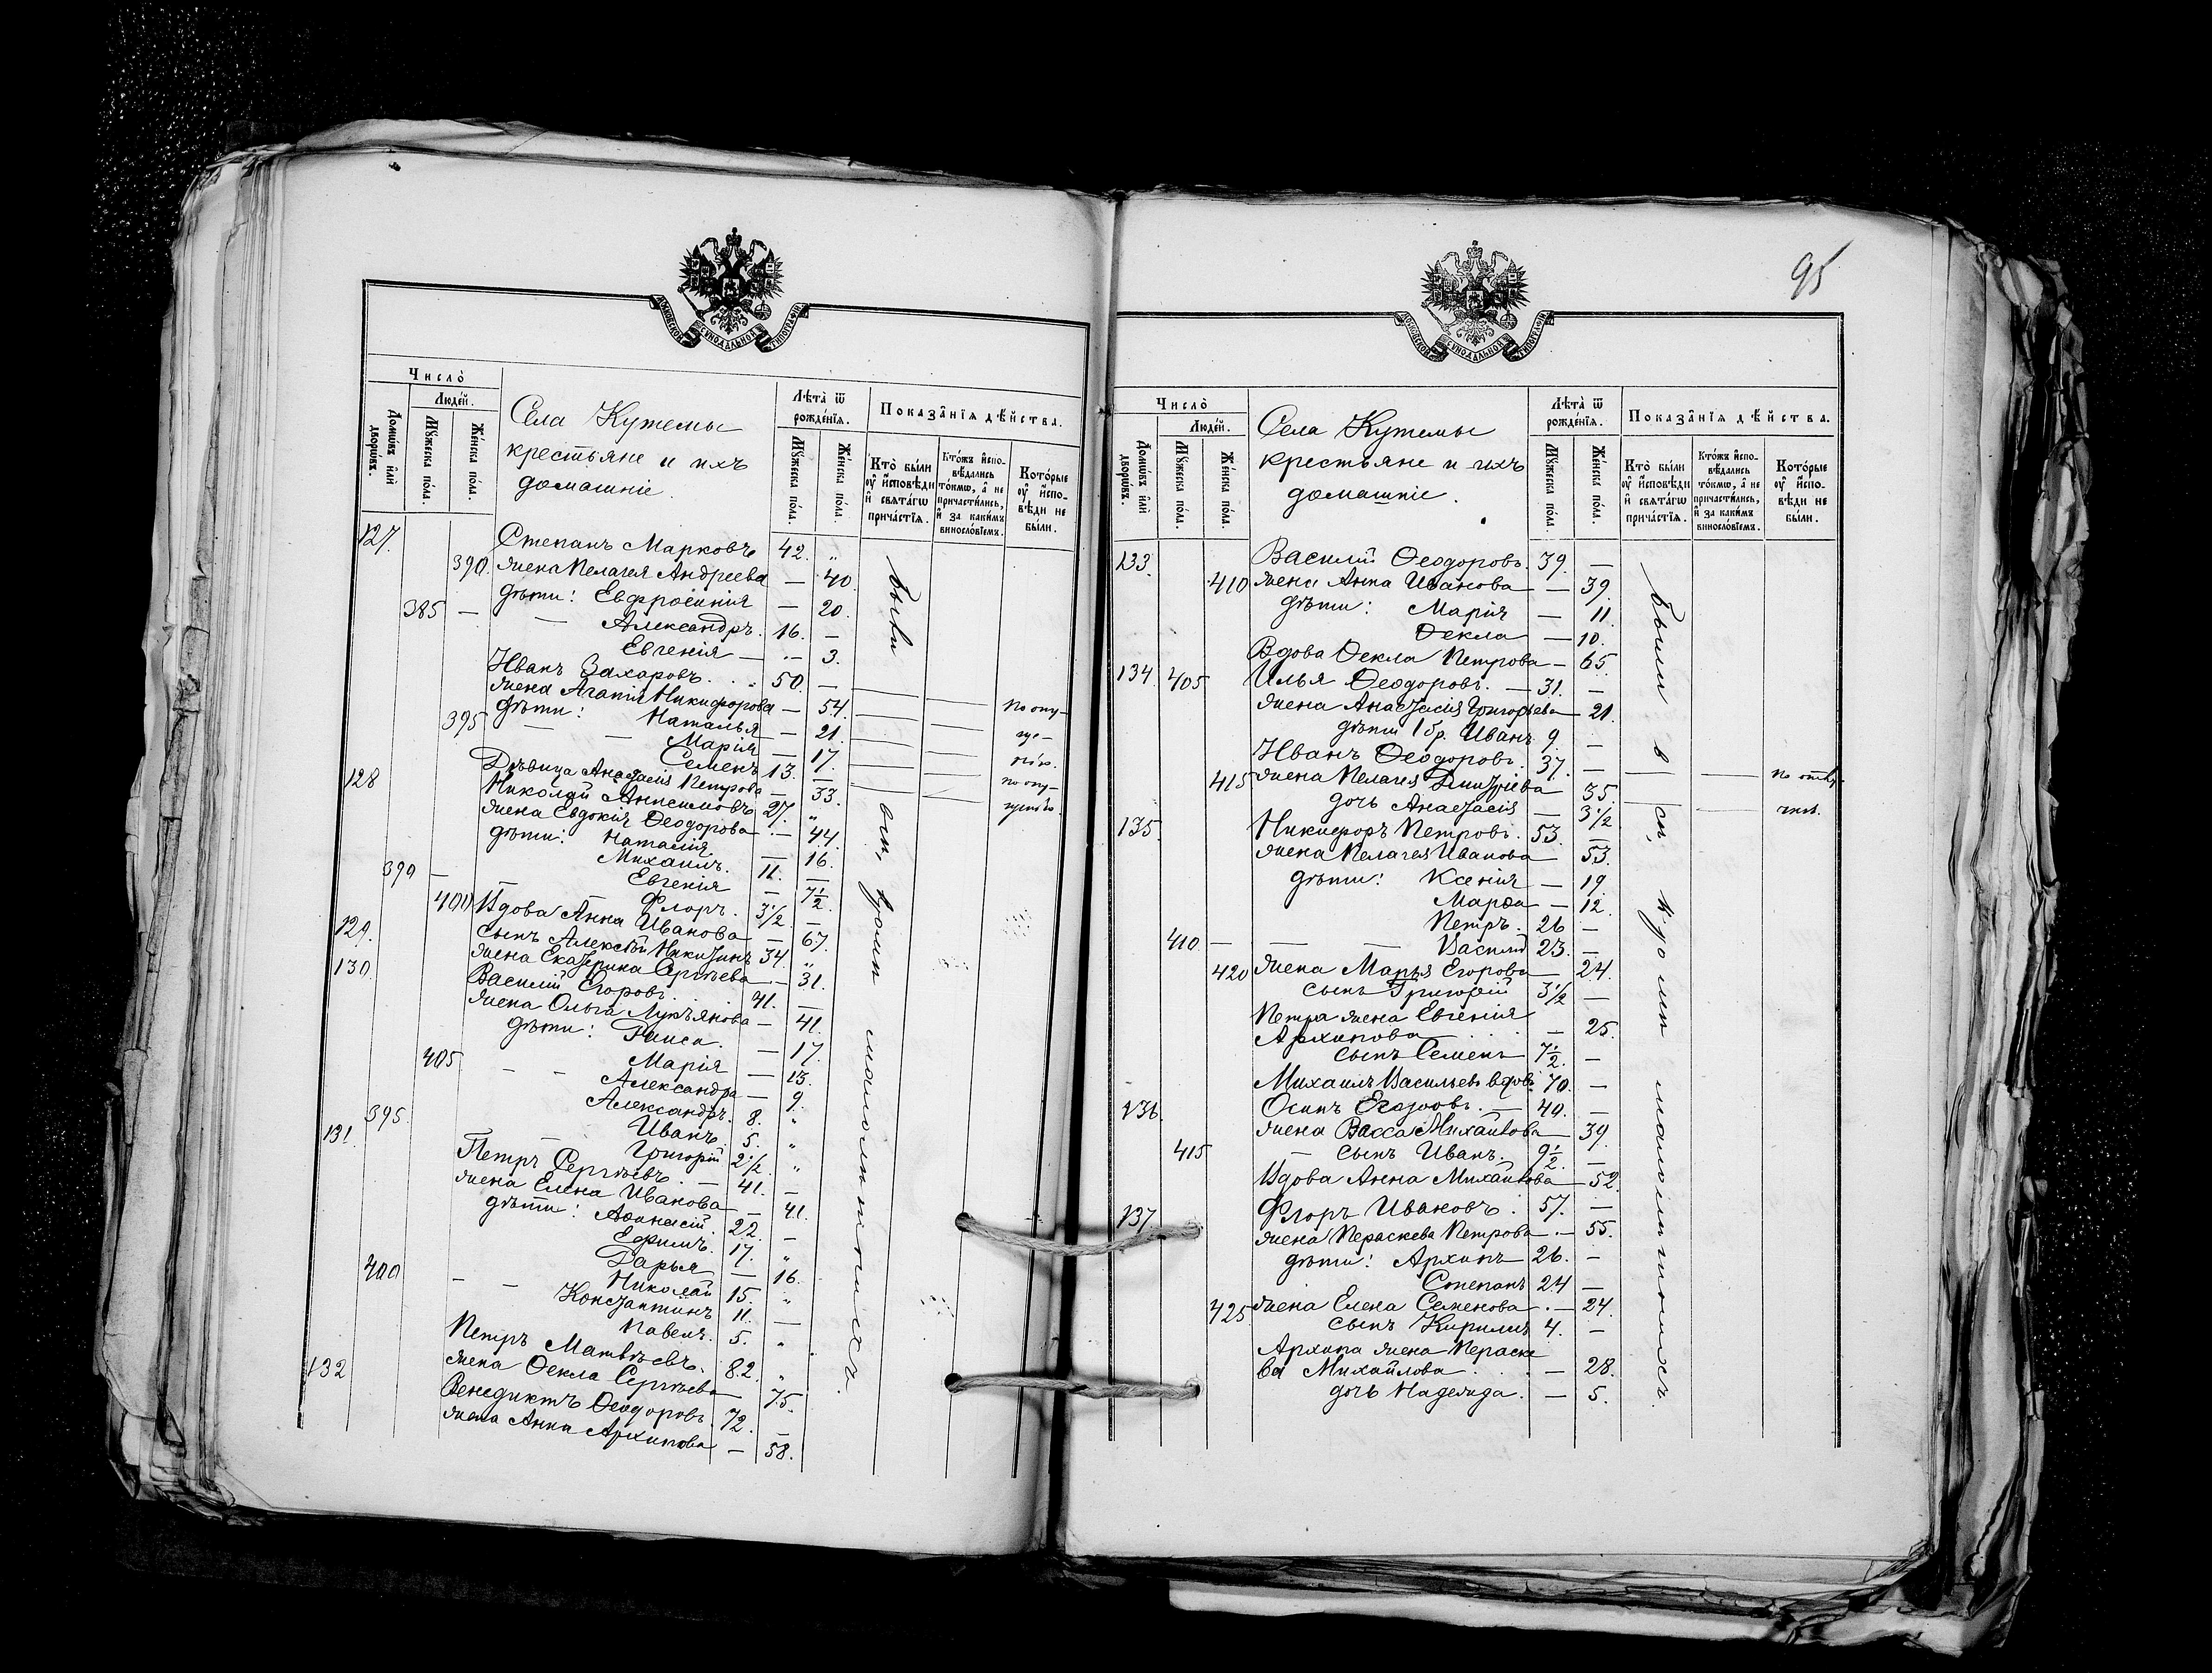 МОСКОВСКОЙ СѴНОДАЛЬНОЙ ТИПОГРАФІИ
Число̀
Людéй.
Домѡ́въ и҆лѝ дворѡ́въ.
Мꙋ́жеска по́ла.
Же́нска по́ла.
Села Кутемы
крестьяне и ихъ
домашніе.
Лѣ́та ѿ рожде́нїѧ.
Мꙋ́жеска по́ла.
Же́нска по́ла.
Показа̑нїѧ дѣ́йства.
Кто̀ бы́ли ᲂу҆ и҆сповѣ́ди и҆ свѧта́гѡ прича́стїѧ.
Кто́жъ и҆спо-
вѣ́дались
то́кмѡ, а҆ не
причасти́лись,
и҆ за каки́мъ
винослѡ́вїемъ.
Кото́рые
ᲂу҆ и҆спо-
вѣ́ди не
бы́ли.
127. Степанъ Марковъ 42. „
390. жена Пелагея Андреева — 40.
дѣти: Евфросинія — 20.
385 — — Александръ. 16. —
Евгенія — — 3.
Иванъ Захаровъ. 50. —
жена Агапія Никифорова — 54.
дѣти: Наталья — 21.
395 — — Марія — 17.
Семенъ 13. —
Дѣвица Анастасія Петрова — 33.
128 Николай Анисимовъ 27. „
жена Евдокія Ѳеодорова — 44.
дѣти: Наталія — 16.
Михаилъ. 11. —
Евгенія — 7 1/2.
390 — — Флоръ. 3 1/2 —
400 Вдова Анна Иванова — 67.
129. сынъ Алексѣй Никитинъ 34. „
жена Екатерина Сергѣева — 31.
130. Василій Егоровъ. 41. —
жена Ольга Лукьянова — 41.
дѣти: Раиса. — 17.
Марія — 13.
405. — — Александра — 9.
Александръ. 8. „
Иванъ. 5. „
395. — Григорій 2 1/2. „
131. Петръ Сергѣевъ. 41. —
жена Елена Иванова — 41.
дѣти: Аѳанасій. 22. —
Ефимъ. 17. „
Дарья — 16.
400 — — Николай 15. „
Константинъ 11. —
Павелъ. 5. „
Петръ Матвѣевъ. 82. „
жена Ѳекла Сергѣева — 75.
132 Венедиктъ Ѳеодоровъ. 72. —
жена Анна Архипова — 58.
были вси, кромѣ малолѣтнихъ.
по опу-
ще-
нію.
по опу-
щенію.
95
МОСКОВСКОЙ СѴНОДАЛЬНОЙ ТИПОГРАФІИ
Число̀
Людéй.
Домѡ́въ и҆лѝ дворѡ́въ.
Мꙋ́жеска по́ла.
Же́нска по́ла.
Села Кутемы
крестьяне и ихъ
домашніе.
Лѣ́та ѿ рожде́нїѧ.
Мꙋ́жеска по́ла.
Же́нска по́ла.
Показа̑нїѧ дѣ́йства.
Кто̀ бы́ли ᲂу҆ и҆сповѣ́ди и҆ свѧта́гѡ прича́стїѧ.
Кто́жъ и҆спо-
вѣ́дались
то́кмѡ, а҆ не
причасти́лись,
и҆ за каки́мъ
винослѡ́вїемъ.
Кото́рые
ᲂу҆ и҆спо-
вѣ́ди не
бы́ли.
133. Василій Ѳеодоровъ. 39. —
410 жена Анна Иванова — 39.
дѣти: Марія — 11.
Ѳекла — 10.
Вдова Ѳекла Петрова — 65.
134. 405 Илья Ѳеодоровъ. — 31. —
жена Анастасія Григорьева — 21.
дѣти 1 бр. Иванъ 9. —
Иванъ Ѳеодоровъ. 37. —
415 жена Пелагея Димитріева 35.
дочь Анастасія — 3 1/2
135. Никифоръ Петровъ. 53. —
жена Пелагея Иванова — 53.
дѣти: Ксенія — 19.
Марѳа — 12.
Петръ. 26 —
410 — — — Василій 23. —
420 жена Марья Егорова — 24.
сынъ Григорій 3 1/2 —
Петра жена Евгенія
Архипова — 25.
сынъ Семенъ 7 1/2. —
Михаилъ Васильевъ вдов. 70. —
136. Осипъ Егоровъ. — 40. —
жена Васса Михайлова — 39.
415 — сынъ Иванъ. 9 1/2. —
Вдова Анна Михайлова — 52.
137. Флоръ Ивановъ. 57. —
жена Пераскева Петрова — 55.
дѣти: Архипъ 26. —
Степанъ 24 —
425 жена Елена Семенова — 24.
сынъ Кирилъ 4. —
Архипа жена Пераске
ва Михайлова — 28.
дочь Надежда. — 5.
были вси, кромѣ малолѣтнихъ.